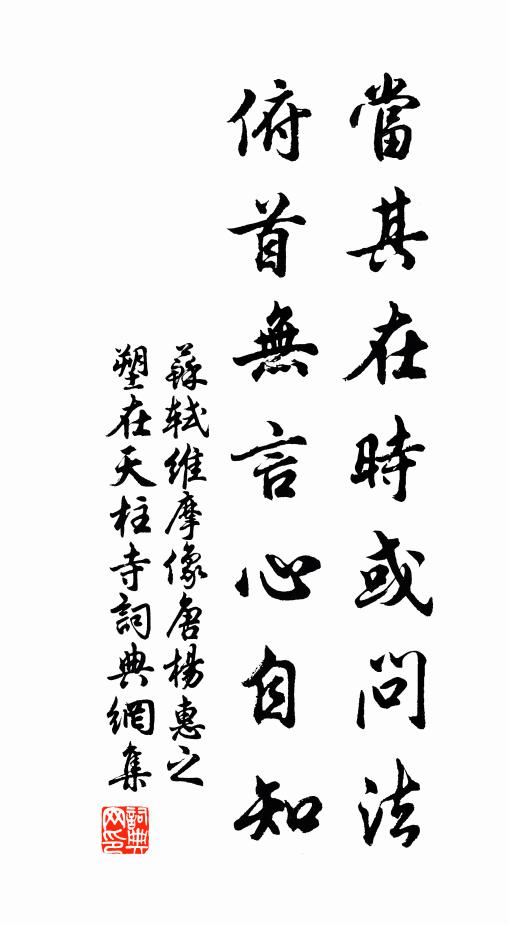 當其在時或問法
俯首無言心自知
蘇軾維摩像唐楊惠之
塑在天柱寺詞典網集
詞典
网印